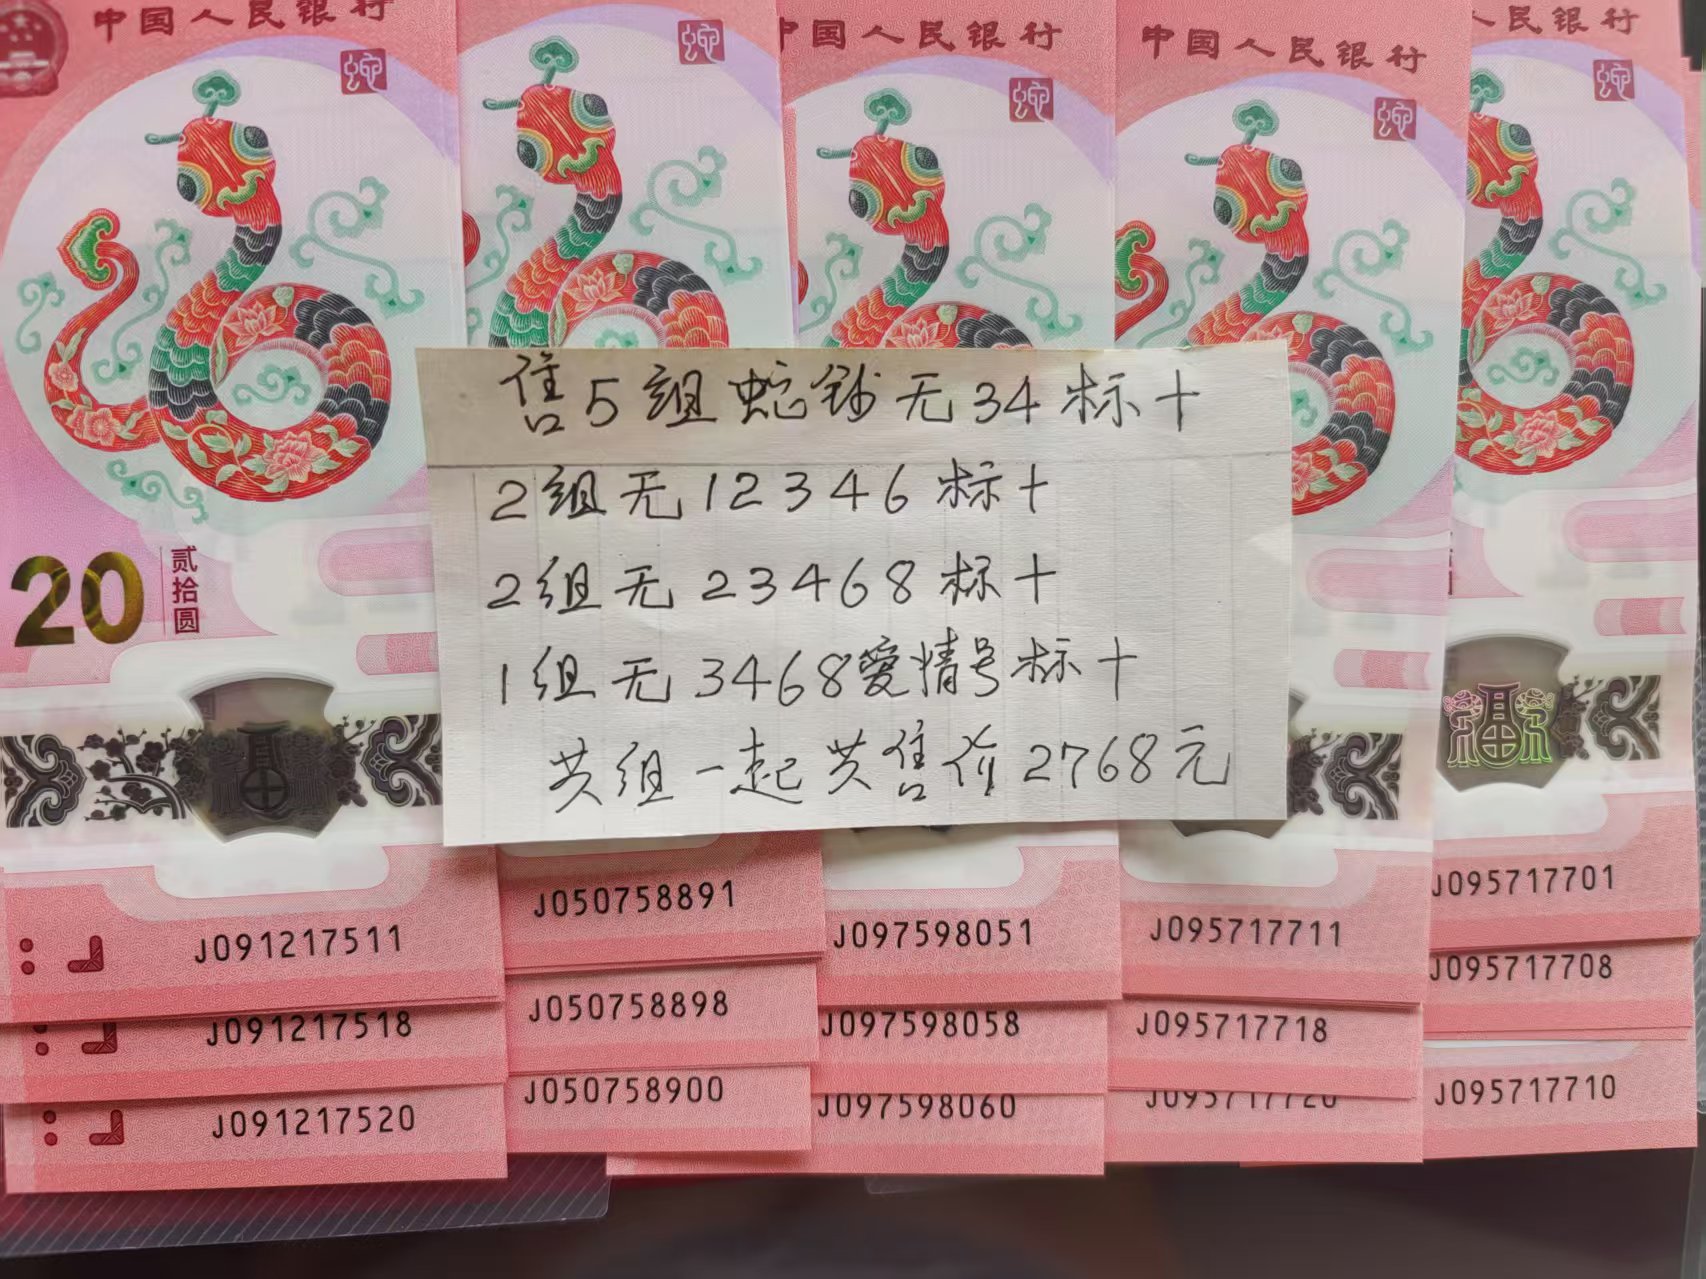 中国人民银行
中国人民银行
中国人民银行
人民银行
售5组蛇钞无34标十
2组无12346标十
2组无23468标十
1组无3468爱情号标十
共组一起共售价2768元
20
贰拾圆
J091217511
J091217518
J091217520
J050758891
J050758898
J050758900
J097598051
J097598058
J097598060
J095717711
J095717718
J095717720
J095717701
J095717708
J095717710